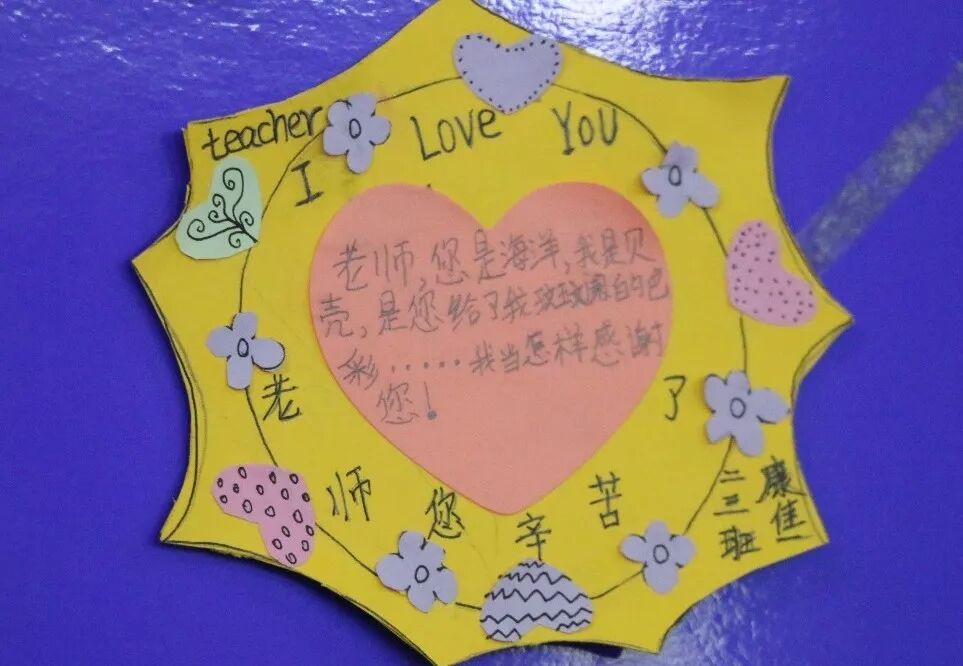 teacher I Love You
老师,您是海洋,我是贝
壳,是您给了我玫瑰的色
彩......我当怎样感谢
您!
老师您辛苦了
二三班
康佳